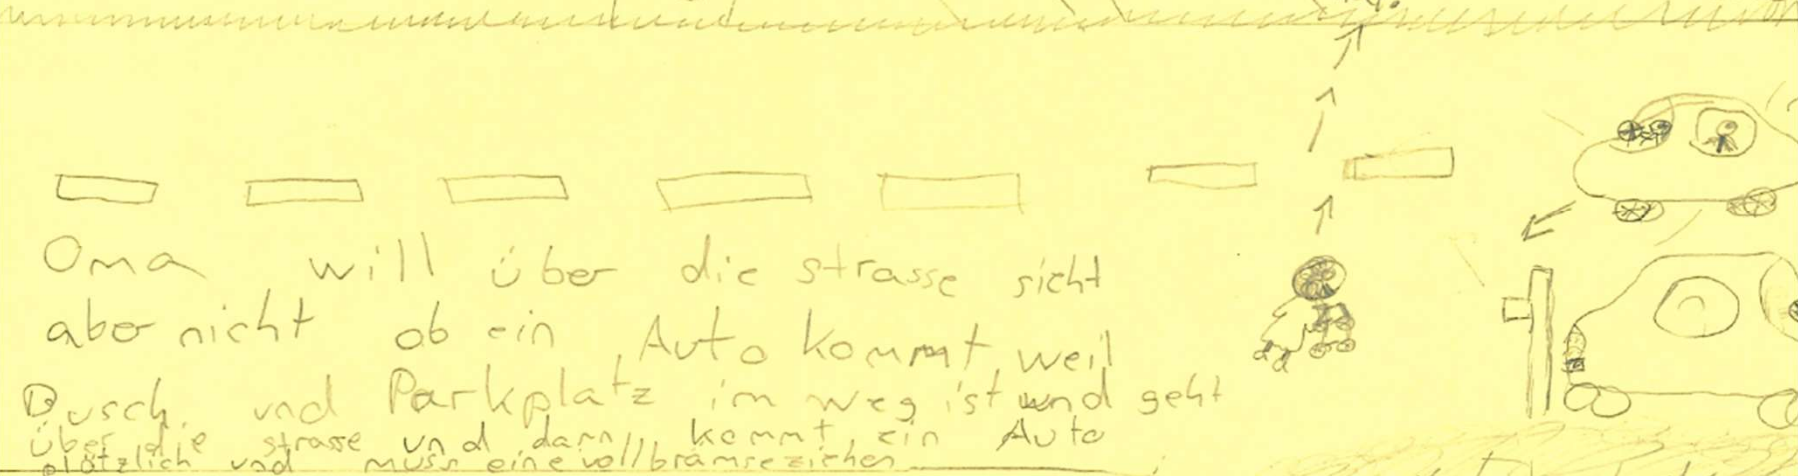 Oma will über die strasse sieht
aber nicht ob ein Auto kommt, weil
Busch und Parkplatz im weg ist und geht
über die strasse und dann kommt ein Auto
plötzlich und muss eine vollbrämse ziehen